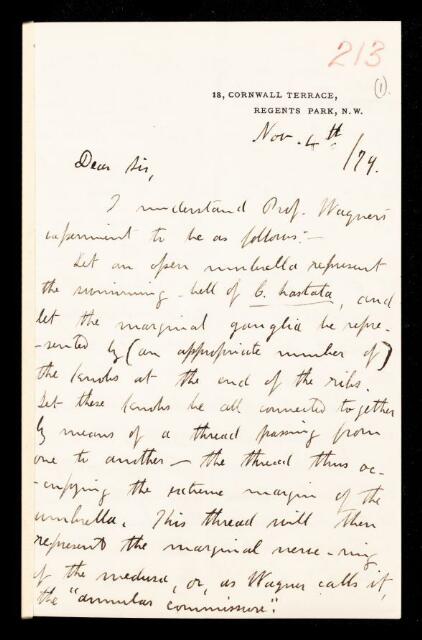 213
(1).
18, CORNWALL TERRACE,
REGENTS PARK, N.W.
Nov. 4th/79.
Dear Sir,
I understand Prof. Wagner's
experiment to be as follows:—
Let an open umbrella represent
the swimming-bell of C. hastata, and
let the marginal ganglia be repre-
-sented by (an appropriate number of)
the knobs at the end of the ribs.
Let these knobs be all connected together
by means of a thread passing from
one to another — the thread thus oc-
-cupying the extreme margin of the
umbrella. This thread will then
represent the marginal nerve-ring
of the medusa, or, as Wagner calls it,
the "annular commissure".